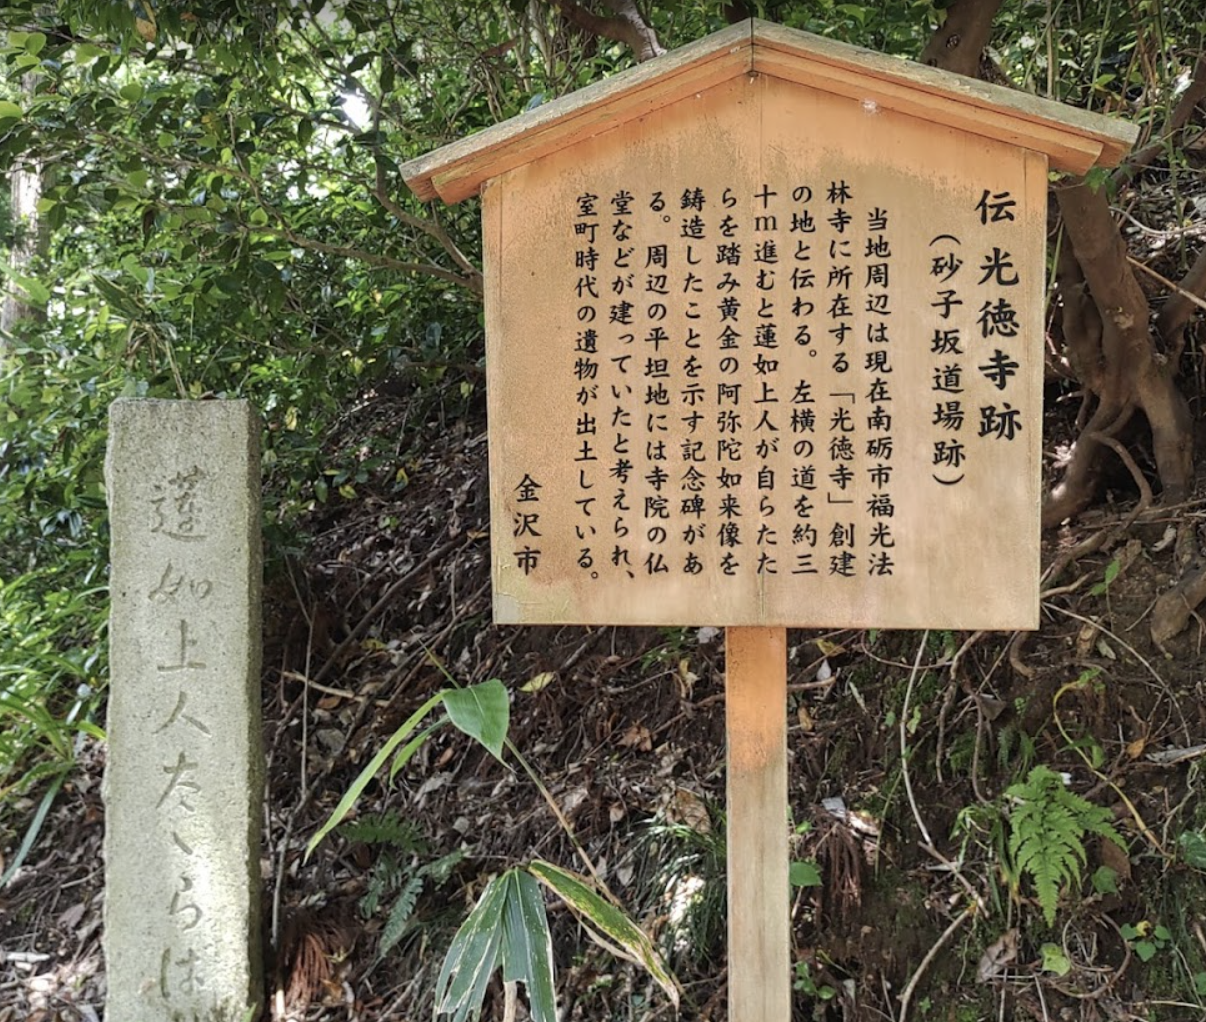 伝 光徳寺跡
（砂子坂道場跡）
当地周辺は現在南砺市福光法
林寺に所在する「光徳寺」創建
の地と伝わる。左横の道を約三
十ｍ進むと蓮如上人が自らたた
らを踏み黄金の阿弥陀如来像を
鋳造したことを示す記念碑があ
る。周辺の平坦地には寺院の仏
堂などが建っていたと考えられ、
室町時代の遺物が出土している。
金沢市
蓮如上人たゝらは